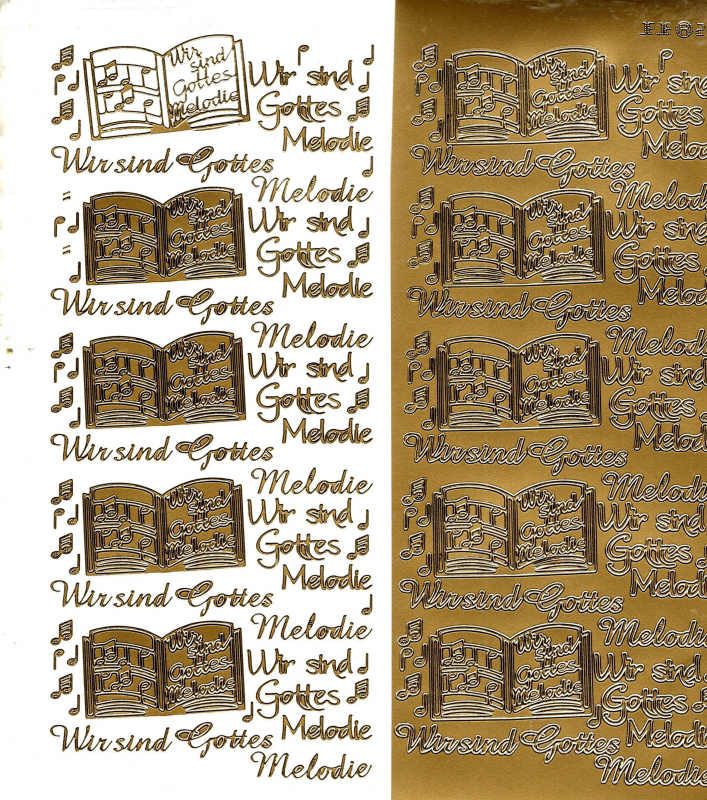 Wir
sind
Gottes
Melodie
Wir sind
Gottes
Melodie
Wir sind Gottes
Melodie
Wir
sind
Gottes
Melodie
Wir sind
Gottes
Melodie
Wir sind Gottes
Melodie
Wir
sind
Gottes
Melodie
Wir sind
Gottes
Melodie
Wir sind Gottes
Melodie
Wir
sind
Gottes
Melodie
Wir sind
Gottes
Melodie
Wir sind Gottes
Melodie
Wir
sind
Gottes
Melodie
Wir sind
Gottes
Melodie
Wir sind Gottes
Melodie
Wir
sind
Gottes
Melodie
Wir sind
Gottes
Melodi
Wir sind Gottes
Melodi
Wir
sind
Gottes
Melodie
Wir sind
Gottes
Melodi
Wir sind Gottes
Melodi
Wir
sind
Gottes
Melodie
Wir sind
Gottes
Melodi
Wir sind Gottes
Melodi
Wir
sind
Gottes
Melodie
Wir sind
Gottes
Melodie
Wir sind Gottes
Melodi
Wir
sind
Gottes
Melodie
Wir sind
Gottes
Melodie
Wir sind Gottes
Melodie